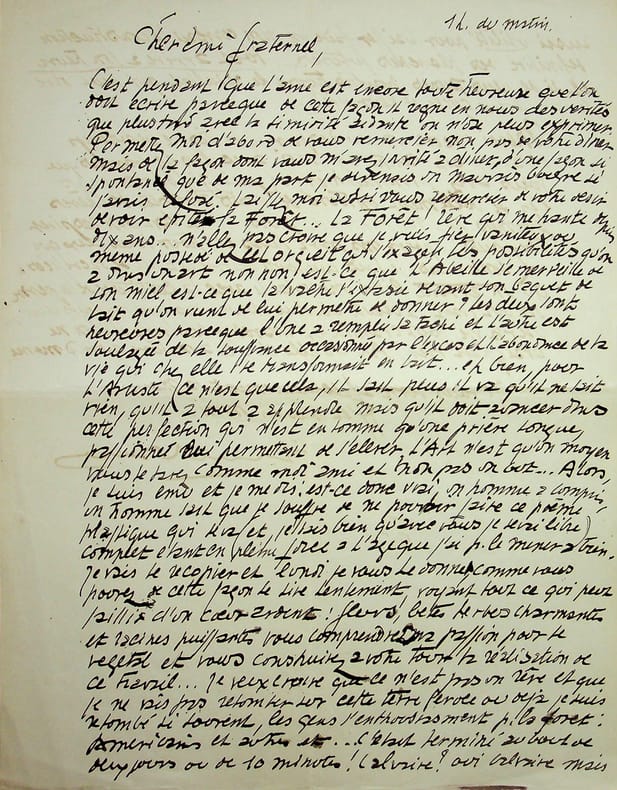 1 h. du matin.
Cher Ami fraternel,
C'est pendant que l'ame est encore toute heureuse que l'on
doit ecrire parceque de cette façon il regne en nous des verités
que plus tard avec la timidité aidante on n'ose plus exprimer.
Permettez moi d'abord de vous remercier non pas de votre diner
mais de la façon dont vous m'avez invité a diner, d'une façon si
spontanée que de ma part je deviendrais un mauvais si
j'avais refusé. Laissez moi aussi vous remercier de votre desir
de voir editer la Forêt... La Forêt! rêve qui me hante depuis
dix ans... n'allez pas croire que je suis fier, vaniteux ou
même possedé de cet orgueil qui exagere les possibilités qu'on
a dans un art non non, est-ce que l'Abeille s'emerveille de
son miel, est-ce que la vache s'extasie devant son baquet de
lait qu'on vient de lui permettre de donner? les deux sont
heureuses parceque l'une a rempli sa tache et l'autre est
soulagée de la souffrance occasionnée par l'exces et l'abondance de la
vie qui chez elle se transformait en lait... eh bien, pour
l'Artiste ce n'est que cela, il sait plus il va qu'il ne sait
rien, qu'il a tout a apprendre mais qu'il doit avancer dans
cette perfection qui n'est en somme qu'une prière longue,
passionnée qui permettant de s'elever. L'Art n'est qu'un moyen
vous le savez comme moi ami et non pas un but... Alors,
je suis emu et je me dis: est-ce donc vrai, un homme a compris,
un homme sait que je souffre de ne pouvoir faire ce poème
plastique qui et je sais bien qu'avec vous je serai libre
complet etant en pleine force a l'age que j'ai p. le mener a bien.
Je vais le recopier et lundi je vous le donne comme vous
pouvez de cette façon le lire lentement, voyant tout ce qui peut
jaillir d'un cœur ardent! fleurs, betes herbes charmantes
et racines puissantes vous comprendrez ma passion pour le
vegetal et vous construirez a votre tour la réalisation de
ce travail... Je veux croire que ce n'est pas un rêve et que
je ne vais pas retomber sur cette terre feroce ou deja je suis
retombé si souvent, les gens s'enthousiasment p. la foret:
Americains et autres et... c'etait terminé au bout de
deux jours ou de 10 minutes! Calvaire? oui calvaire mais